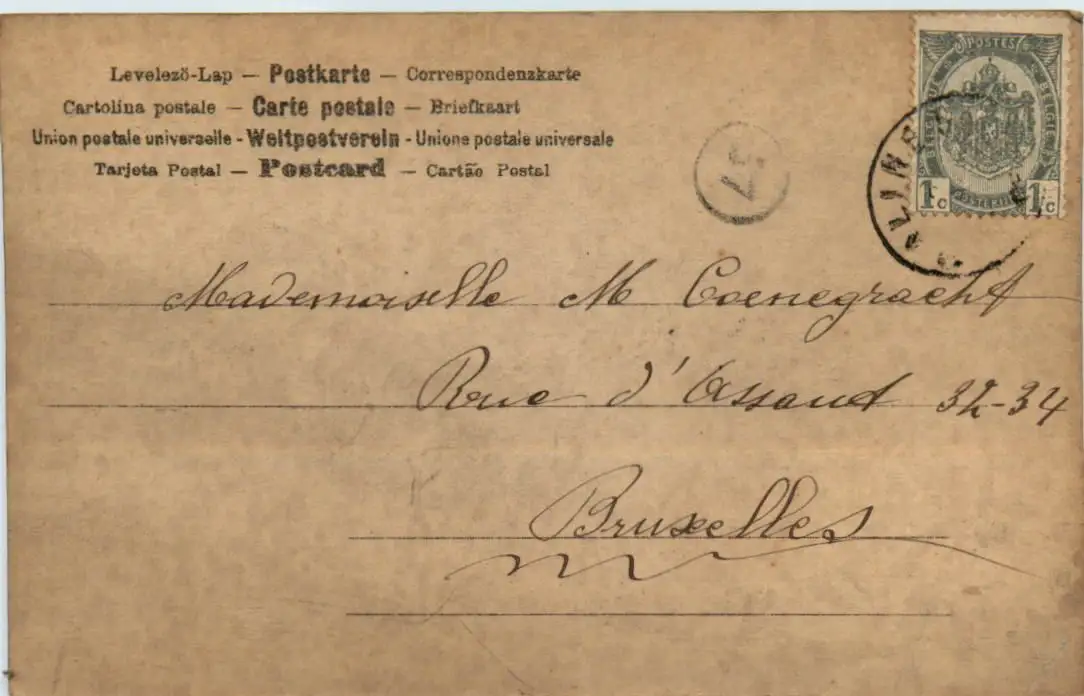 Levelező-Lap — Postkarte — Correspondenzkarte
Cartolina postale — Carte postale — Briefkaart
Union postale universelle - Weltpostverein - Unione postale universale
Tarjeta Postal — Postcard — Cartão Postal
POSTES
BELGIQUE
BELGIE
POSTERIJEN
1c 1c
37
Mademoiselle M Coenegracht
Rue d'Assaut 32-34
Bruxelles